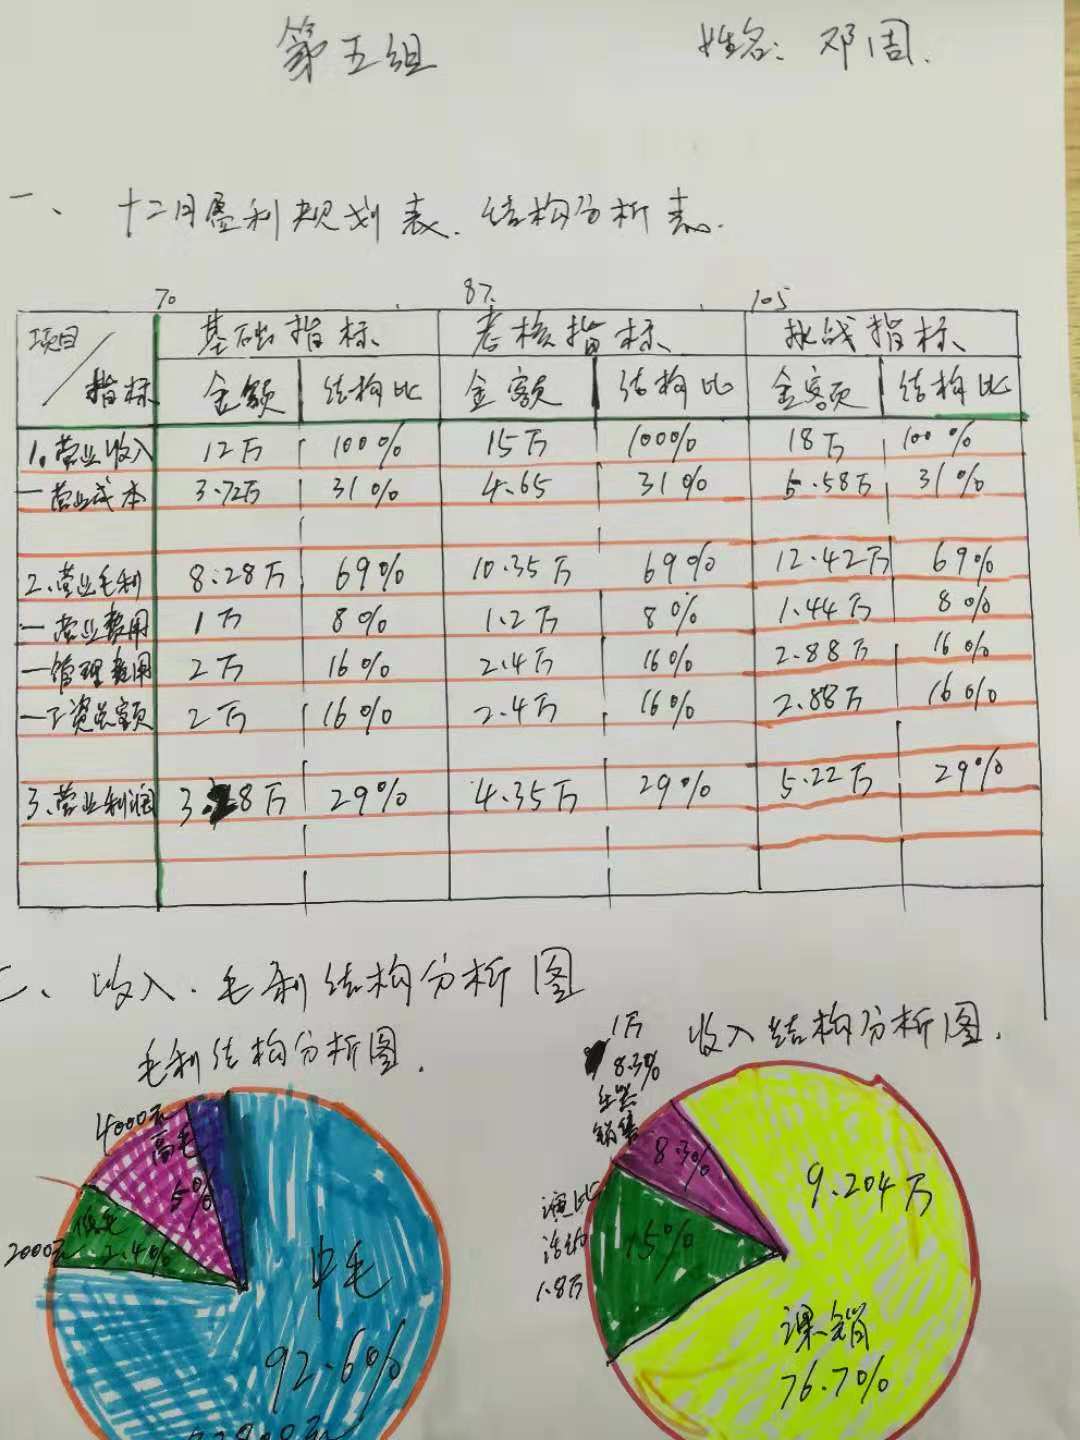 第五组 姓名:邓周.
一、十二月盈利规划表.结构分析表.
70 87 105
项目/指标 基础指标 考核指标 挑战指标
金额 结构比 金额 结构比 金额 结构比
1.营业收入 12万 100% 15万 100% 18万 100%
一营业成本 3.72万 31% 4.65 31% 5.58万 31%
2.营业毛利 8.28万 69% 10.35万 69% 12.42万 69%
一营业费用 1万 8% 1.2万 8% 1.44万 8%
一管理费用 2万 16% 2.4万 16% 2.88万 16%
一工资总额 2万 16% 2.4万 16% 2.88万 16%
3.营业利润 3.28万 29% 4.35万 29% 5.22万 29%
二、收入.毛利结构分析图
毛利结构分析图.
4000元
高毛
5%
2000元
低毛
2.4%
中毛
92.6%
收入结构分析图.
1万
8.3%
销售
8.3%
活动
1.8万
15%
9.204万
课销
76.7%